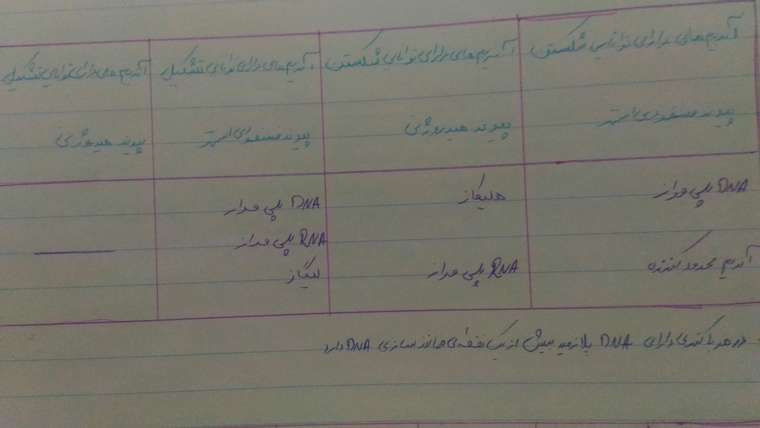 آنزیم‌های دارای توانایی شکستن
پیوند فسفودی‌استر
آنزیم‌های دارای توانایی شکستن
پیوند هیدروژنی
آنزیم‌های دارای توانایی تشکیل
پیوند فسفودی‌استر
آنزیم‌های دارای توانایی تشکیل
پیوند هیدروژنی
DNA پلی مراز
آنزیم محدود کننده
هلیکاز
RNA پلی مراز
DNA پلی مراز
RNA پلی مراز
لیگاز
در هر باکتری دارای DNA پلازمید بیش از یک نقطه‌ی همانندسازی DNA دارد